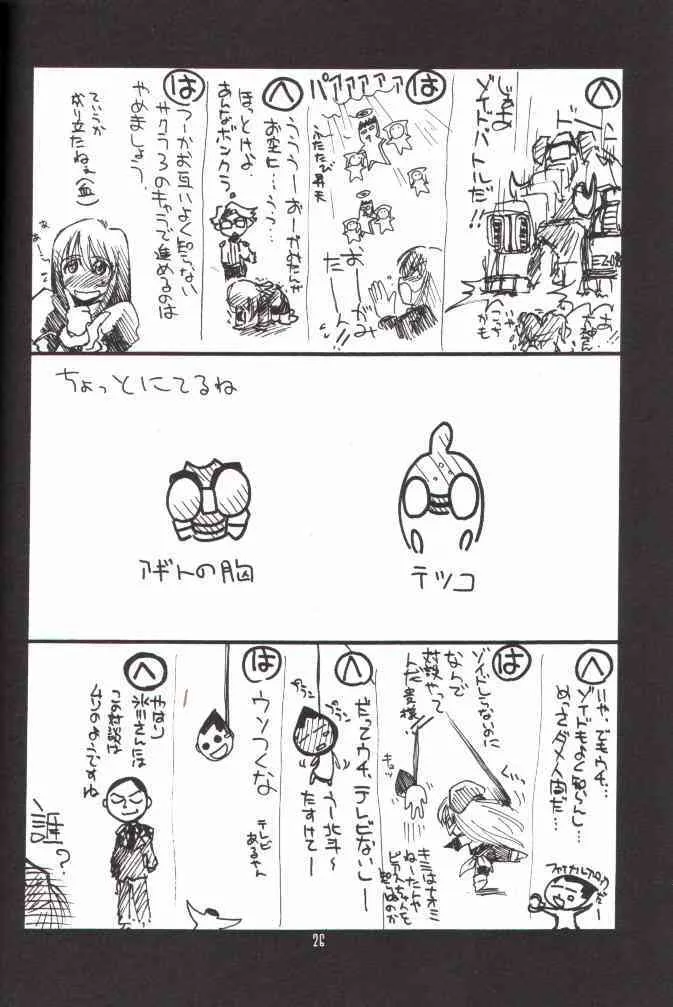 へ
じゃあ
ゾイドバトルだ!!
は
パアアアアァァ
ふたたび昇天
おーがみ
たーん
へ
うううーおーがみたいを
お空に…うっ…
ほっとけよ
あんなボンクラ。
は
つーかお互いよく知らない
サクラ3のキャラで進めるのは
やめましょう。
ていうか
がり立たねぇ(血)
ちょっとにてるね
アギトの胸
テツコ
へ
いや、でもウチ…
ゾイドもよく知らんし…
めっさダメ人間だ…
は
ゾイドしらないのに
なんで
対談やって
んだ貴様
キュッ
キミはナオミ
ねーたんや
ビアンちゃんを
知らぬのか
へ
プラン
プラン
だってウチ、テレビないしー
うー北斗〜
たすけてー
は
ウソつくな
テレビ
あるやん
へ
やはり
氷川さんには
この対談は
ムリのようですね
誰?
26